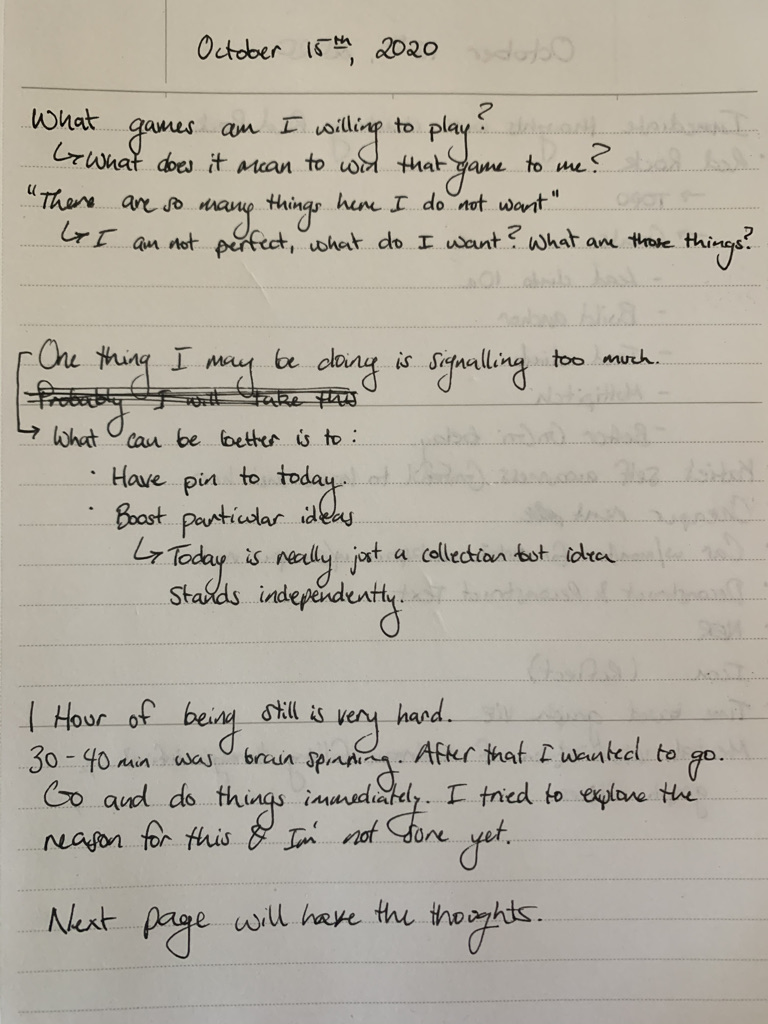 October 15th, 2020
What games am I willing to play?
↳ What does it mean to win that game to me?
"There are so many things here I do not want"
↳ I am not perfect, what do I want? What are those things?
One thing I may be doing is signalling too much.
Probably I will take this
→ What can be better is to:
· Have pin to today.
· Boost particular ideas
↳ Today is really just a collection but idea
stands independently.
1 Hour of being still is very hard.
30-40 min was brain spinning. After that I wanted to go.
Go and do things immediately. I tried to explore the
reason for this & Im' not sure yet.
Next page will have the thoughts.